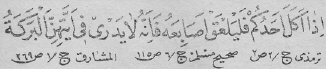 اِذَا اَكَلَ اَحَدُكُمْ فَلْيَلْعَقْ اَصَابِعَهُ فَاِنَّهُ لَا يَدْرِىْ فِىْ اَيَّتِهِنَّ الْبَرَكَةُ
ترمذی ج/۲ ص۲ صحیح مسلم ج/۶ ص۱۱۵ المشارق ج/۱ ص۳۶۹